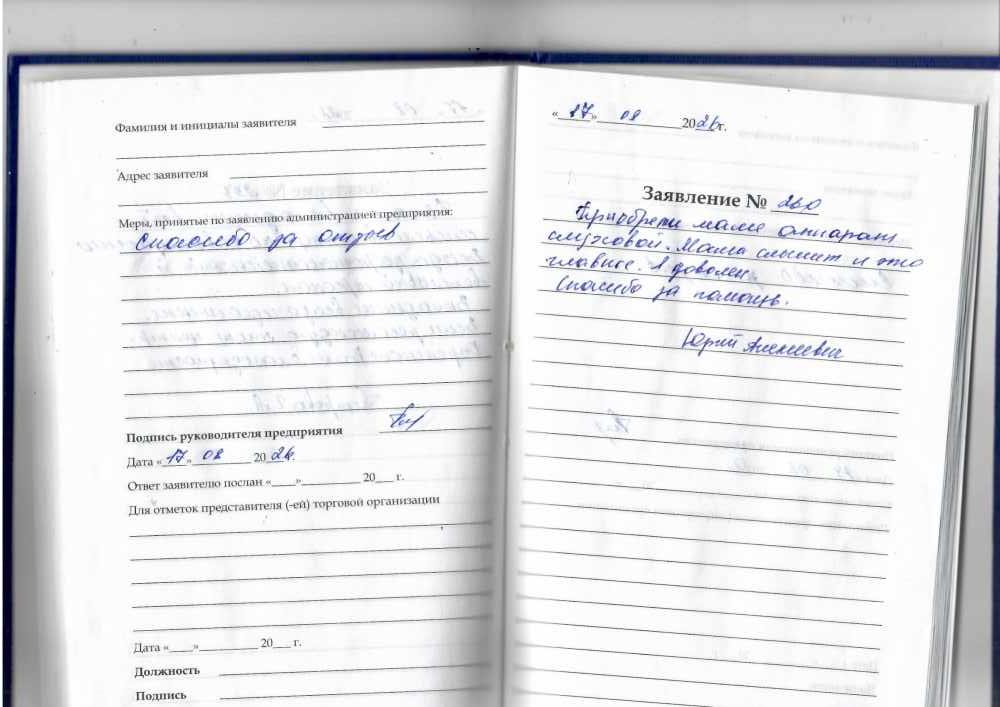 Фамилия и инициалы заявителя
Адрес заявителя
Меры, принятые по заявлению администрацией предприятия:
Спасибо за отзыв
Подпись руководителя предприятия
Дата «17» 08 2026.
Ответ заявителю послан «____»__________ 20___ г.
Для отметок представителя (-ей) торговой организации
Дата «____»__________ 20___ г.
Должность
Подпись
«17» 08 2026г.
Заявление № 260
Приобрели маме аппарат
слуховой. Мама слышит и это
главное. Я доволен
Спасибо за помощь.
Юрий Алексеевич